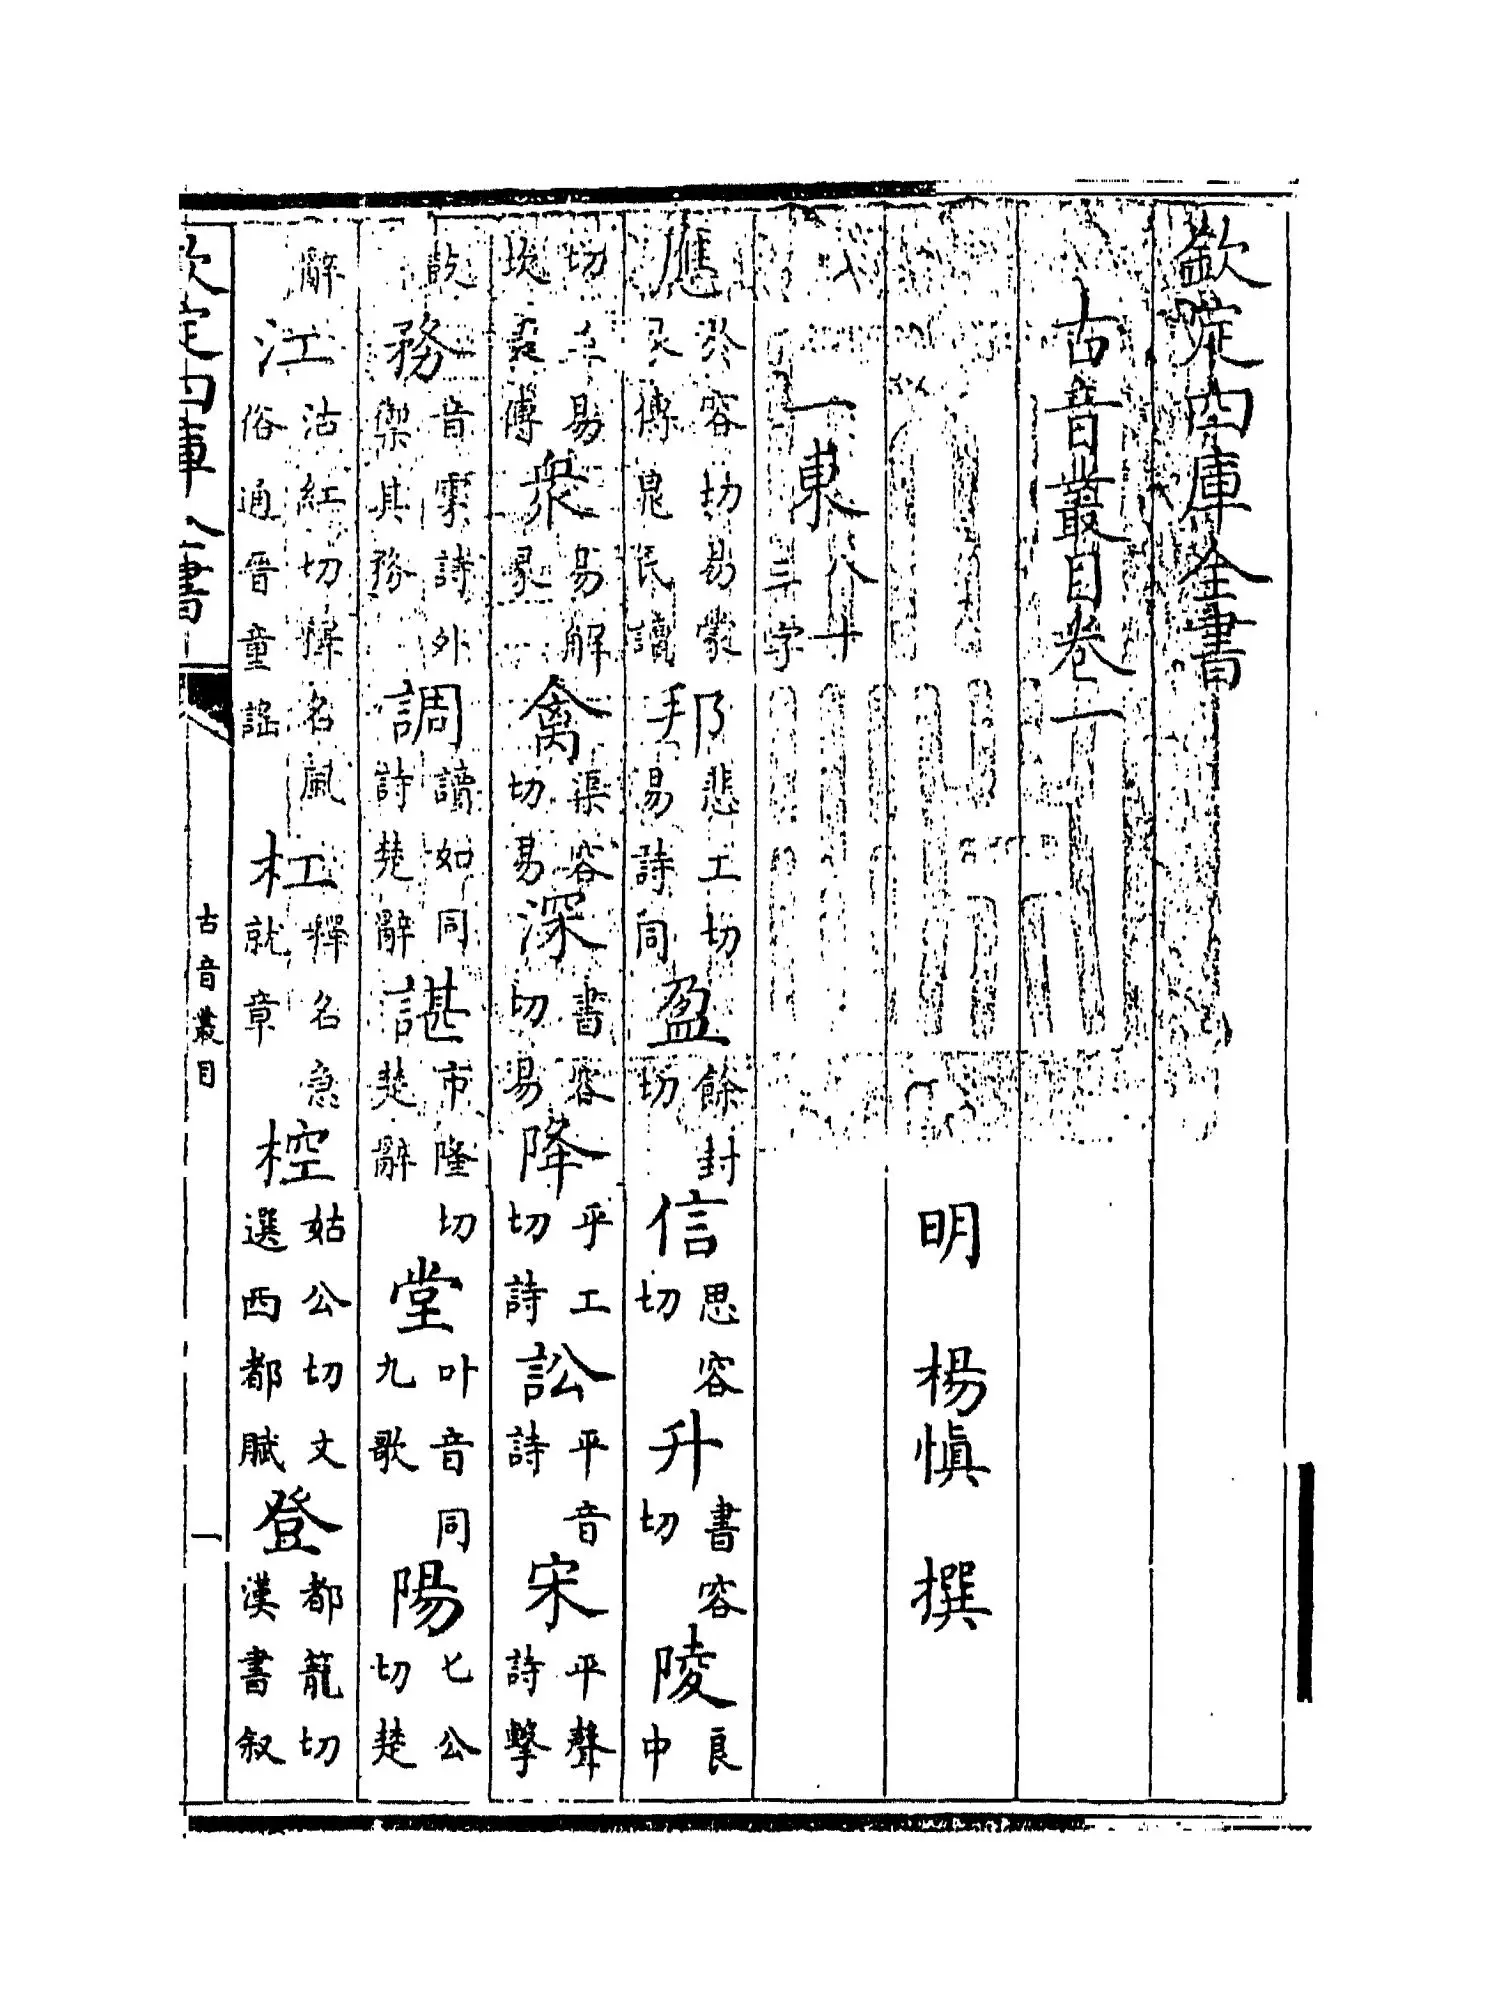 欽定四庫全書
古音叢目卷一
明 楊慎 撰
一東 八十三字
應 於容切易蒙彖傳晁氏讀 邦 悲工切易詩同 盈 餘封切 信 思容切 升 書容切 陵 良中
切 易坎彖傳 衆 易解彖 禽 渠容切易 深 書容切易 降 乎工切詩 訟 平音詩 宋 平聲詩擊
鼓 務 音䝉詩外禦其務 調 讀如同詩楚辭 諶 市隆切楚辭 堂 叶音同九歌 陽 七公切楚
辭 江 沽紅切釋名風俗通晉童謡 杠 釋名急就章 椌 姑公切文選西都賦 登 都籠切漢書叙
欽定四庫全書
古音叢目
一